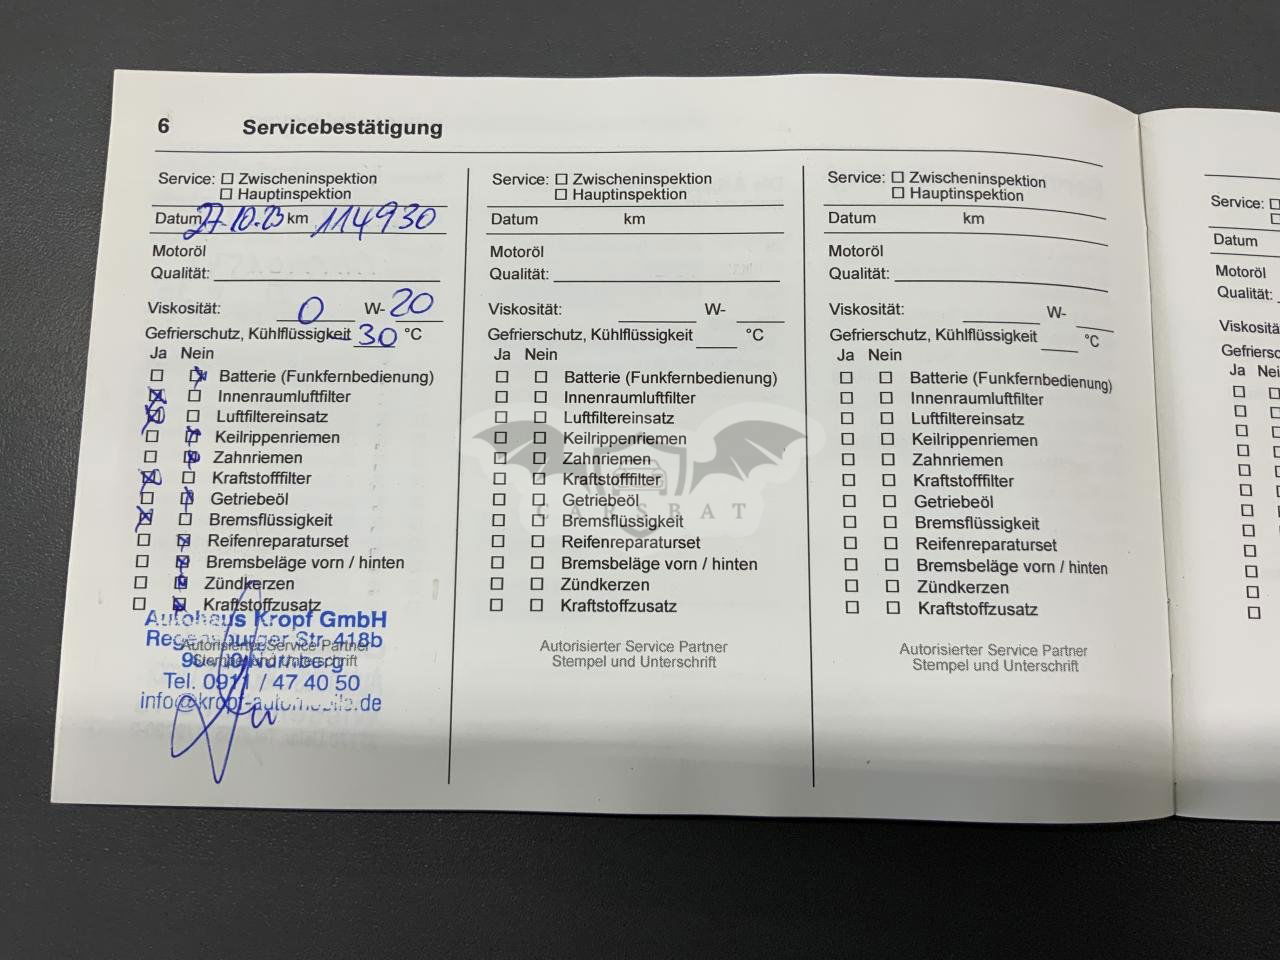 6 Servicebestätigung
Service: Zwischeninspektion
Hauptinspektion
Datum 27.10.23 km 114930
Motoröl
Qualität:
Viskosität: 0 W- 20
Gefrierschutz, Kühlflüssigkeit -30 °C
Ja Nein
Batterie (Funkfernbedienung)
Innenraumluftfilter
Luftfiltereinsatz
Keilrippenriemen
Zahnriemen
Kraftstofffilter
Getriebeöl
Bremsflüssigkeit
Reifenreparaturset
Bremsbeläge vorn / hinten
Zündkerzen
Kraftstoffzusatz
Autohaus Kropf GmbH
Regensburger Str. 418b
Autorisierter Service Partner
Nürnberg
Stempel und Unterschrift
Tel. 0911 / 47 40 50
info@kropf-automobile.de
Service: Zwischeninspektion
Hauptinspektion
Datum km
Motoröl
Qualität:
Viskosität: W-
Gefrierschutz, Kühlflüssigkeit °C
Ja Nein
Batterie (Funkfernbedienung)
Innenraumluftfilter
Luftfiltereinsatz
Keilrippenriemen
Zahnriemen
Kraftstofffilter
Getriebeöl
CARSBAT
Bremsflüssigkeit
Reifenreparaturset
Bremsbeläge vorn / hinten
Zündkerzen
Kraftstoffzusatz
Autorisierter Service Partner
Stempel und Unterschrift
Service: Zwischeninspektion
Hauptinspektion
Datum km
Motoröl
Qualität:
Viskosität: W-
Gefrierschutz, Kühlflüssigkeit °C
Ja Nein
Batterie (Funkfernbedienung)
Innenraumluftfilter
Luftfiltereinsatz
Keilrippenriemen
Zahnriemen
Kraftstofffilter
Getriebeöl
Bremsflüssigkeit
Reifenreparaturset
Bremsbeläge vorn / hinten
Zündkerzen
Kraftstoffzusatz
Autorisierter Service Partner
Stempel und Unterschrift
Service:
Datum
Motoröl
Qualität:
Viskositä
Gefriersc
Ja Nei